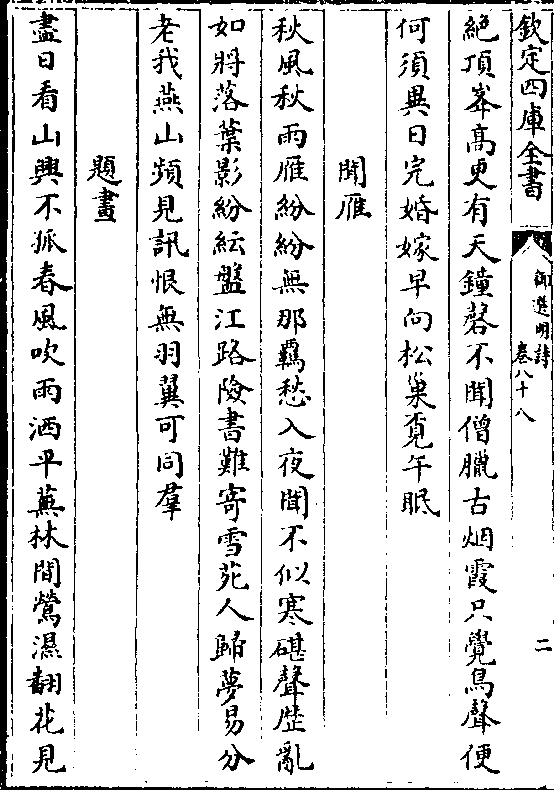 欽定四庫全書
御選明詩
卷八十八
二
絶頂峯髙更有天鐘磬不聞僧臘古烟霞只覺鳥聲便
何須異日完婚嫁早向松巢覔午眠
聞雁
秋風秋雨雁紛紛無那羈愁入夜聞不似寒碪聲歴亂
如將落葉影紛紜盤江路險書難寄雪苑人歸夢易分
老我燕山頻見訊恨無羽翼可同羣
題畫
盡日看山興不孤春風吹雨洒平蕪林間鶯濕翻花見